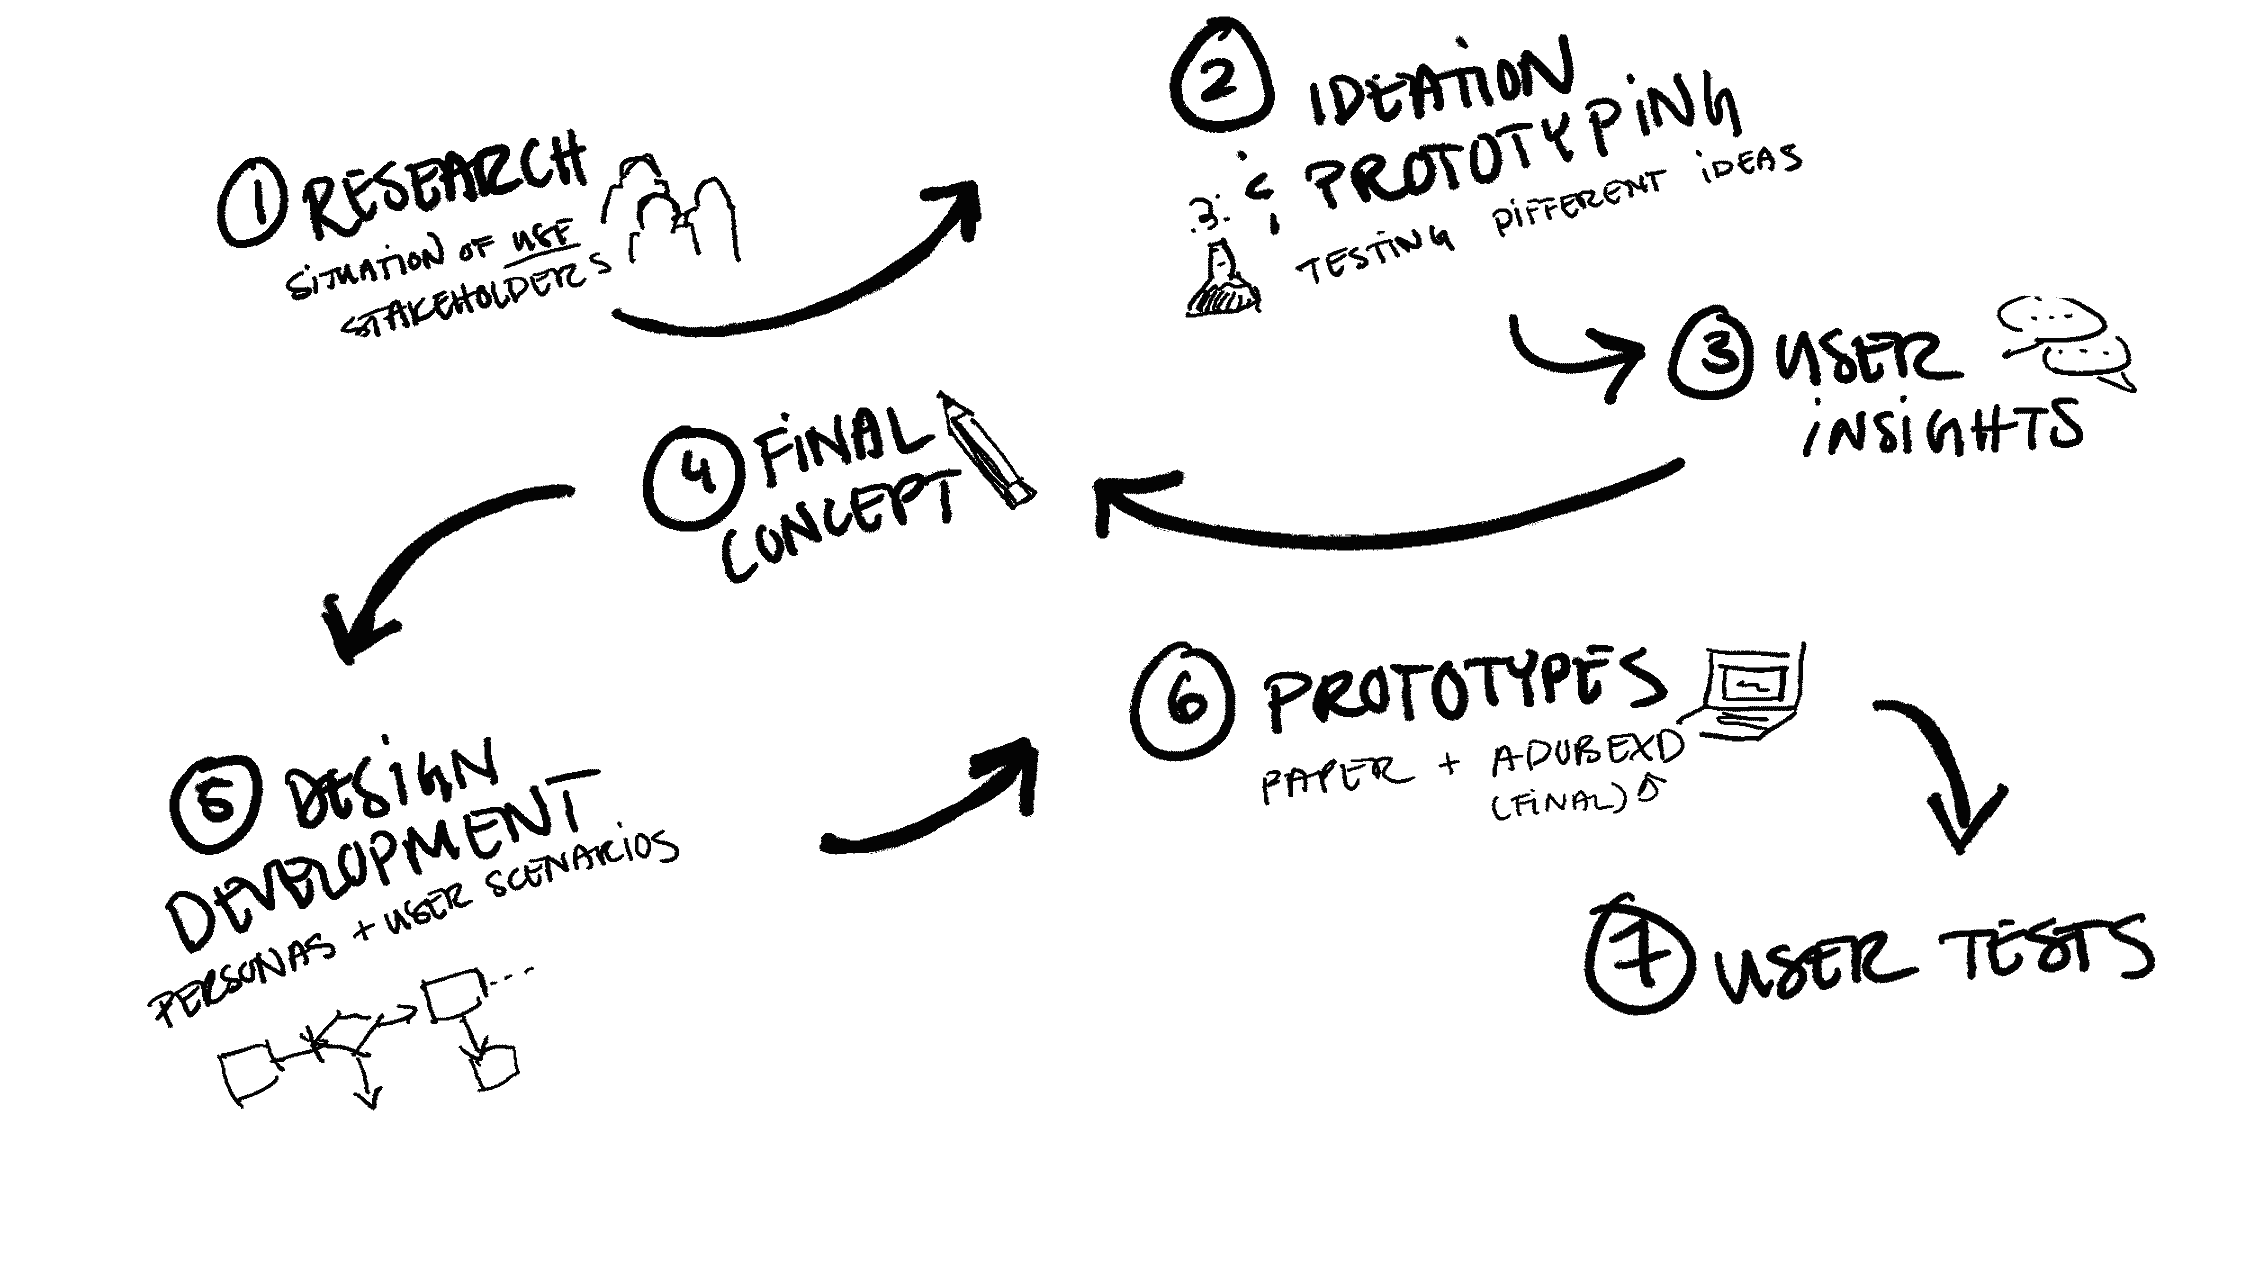 1 RESEARCH
SITUATION OF USE
STAKEHOLDERS
2 IDEATION
& PROTOTYPING
TESTING DIFFERENT IDEAS
3 USER
INSIGHTS
4 FINAL
CONCEPT
5 DESIGN
DEVELOPMENT
PERSONAS + USER SCENARIOS
6 PROTOTYPES
PAPER + ADUBEXD
(FINAL)
7 USER TESTS